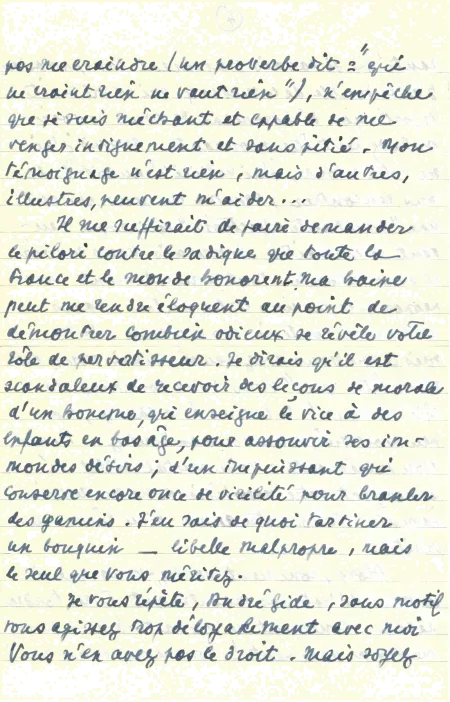 pas me craindre (un proverbe dit : "qui
ne craint rien ne vaut rien"), n'empêche
que je suis méchant et capable de me
venger indignement et sans pitié. Mon
témoignage n'est rien, mais d'autres,
illustres, peuvent m'aider...
Il me suffirait de faire demander
le pilori contre le sadique que toute la
France et le monde honorent, ma haine
peut me rendre éloquent au point de
démontrer combien odieux se révèle votre
rôle de pervertisseur. Je dirais qu'il est
scandaleux de recevoir des leçons de morale
d'un homme, qui enseigne le vice à des
enfants en bas âge, pour assouvir ses im-
mondes désirs ; d'un impuissant qui
conserve encore once de virilité pour branler
des gamins. J'en sais de quoi tartiner
un bouquin — libelle malpropre, mais
le seul que vous méritez.
Je vous répète, André Gide, sans motif
vous agissez trop déloyalement avec moi
Vous n'en avez pas le droit. Mais soyez